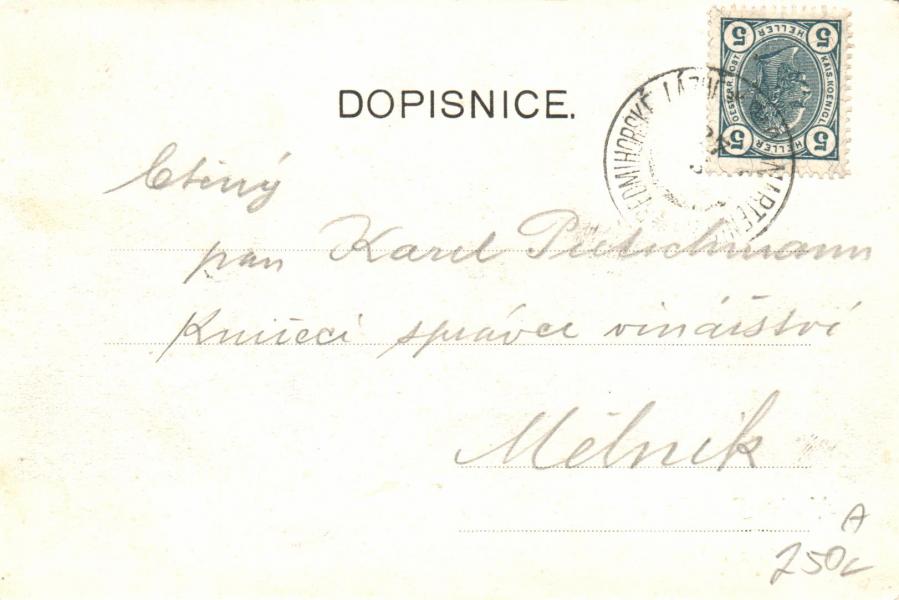 DOPISNICE.
5 HELLER 5
OESTERR. POST. KAIS. KOENIGL.
5 HELLER 5
SEDMIHORSKÉ LÁZNĚ
Ctěný
pan Karel Pietschmann
Knížecí správce vinářství
Mělník
A